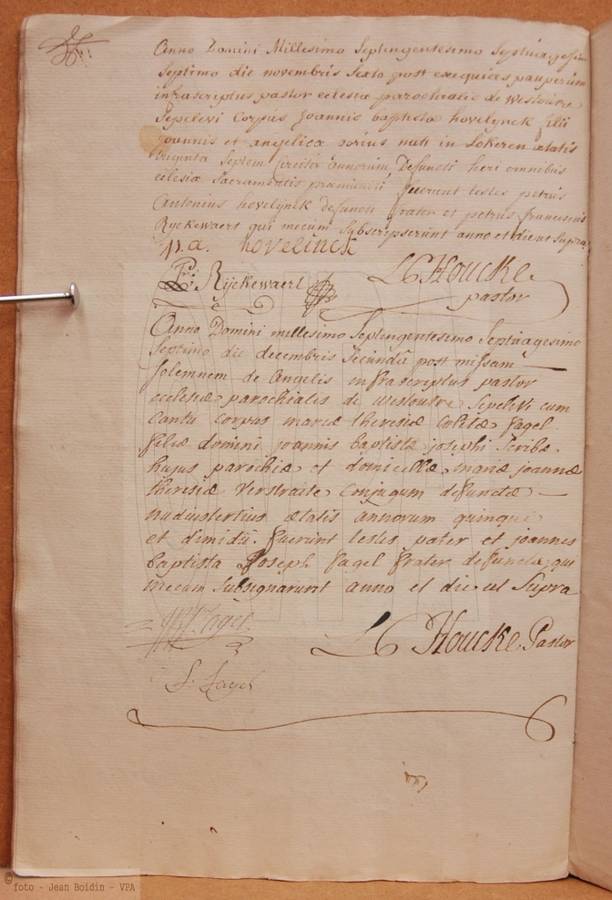 Anno Domini Millesimo Septingentesimo Septuagesimo
Septimo die novembris Sexto post exequias pauperum
infrascriptus pastor eclesiæ parochialis de Westoutre
Sepelivi Corpus Joannis baptistæ hovelynck filii
joannis et angelicæ sorius nati in Lokeren ætatis
triginta Septem circiter annorum, Defuncti heri omnibus
eclesiæ Sacramentis præmuniti fuerunt testes petrus
Antonius hovelynck defuncti frater et petrus franciscus
Ryckewaert qui mecum Subscripserunt anno et die ut Supra
p. a. hovelinck
Rijckewaert
LC Houcke
pastor
Anno Domini millesimo Septingentesimo Septuagesimo
Septimo die decembris Secunda post missam
Solemnem de Angelis infrascriptus pastor
ecclesiæ parochialis de westoutre Sepelivi cum
Cantu Corpus mariæ theresiæ fagel
filiæ domini joannis baptistæ josephi Scribæ
hujus parochiæ et domicellæ mariæ joannæ
theresiæ Verstraete Conjugum defunctæ
nudiustertius ætatis annorum quinque
et dimidii. fuerunt testes pater et joannes
baptista Joseph fagel frater defunctæ qui
mecum Subsignarunt anno et die ut Supra
fagel
LC Houcke Pastor
© foto - Jean Boidin - VPA